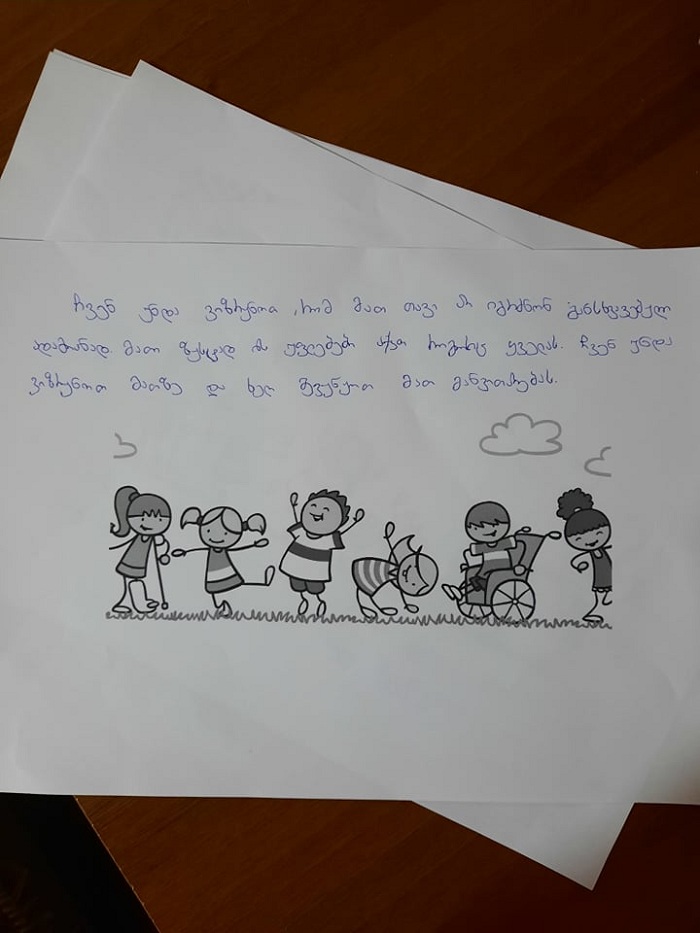 ჩვენ უნდა ვიზრუნოთ, რომ მათ თავი არ იგრძნონ განსხვავებულ
ადამიანად. მათ ზუსტად ის უფლებები აქვთ როგორც ყველას. ჩვენ უნდა
ვიზრუნოთ მათზე და ხელი შევუწყოთ მათ განვითარებას.